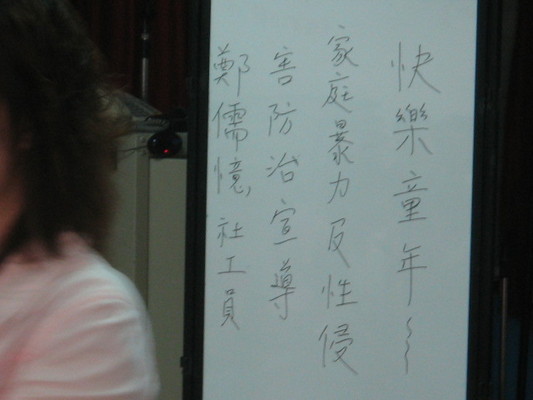 快樂童年~~
家庭暴力及性侵
害防治宣導
鄭儒憶,社工員